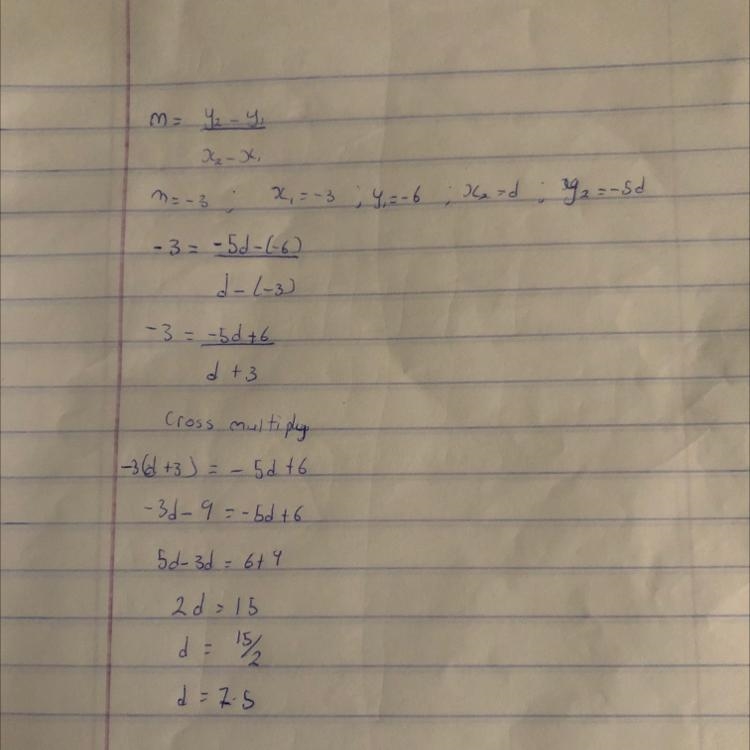 m = y₂ - y₁
x₂ - x₁
m = -3 ; x₁ = -3 ; y₁ = -6 ; x₂ = d ; y₂ = -5d
-3 = -5d - (-6)
d - (-3)
-3 = -5d + 6
d + 3
Cross multiply
-3(d + 3) = - 5d + 6
-3d - 9 = -5d + 6
5d - 3d = 6 + 9
2d = 15
d = 15/2
d = 7.5